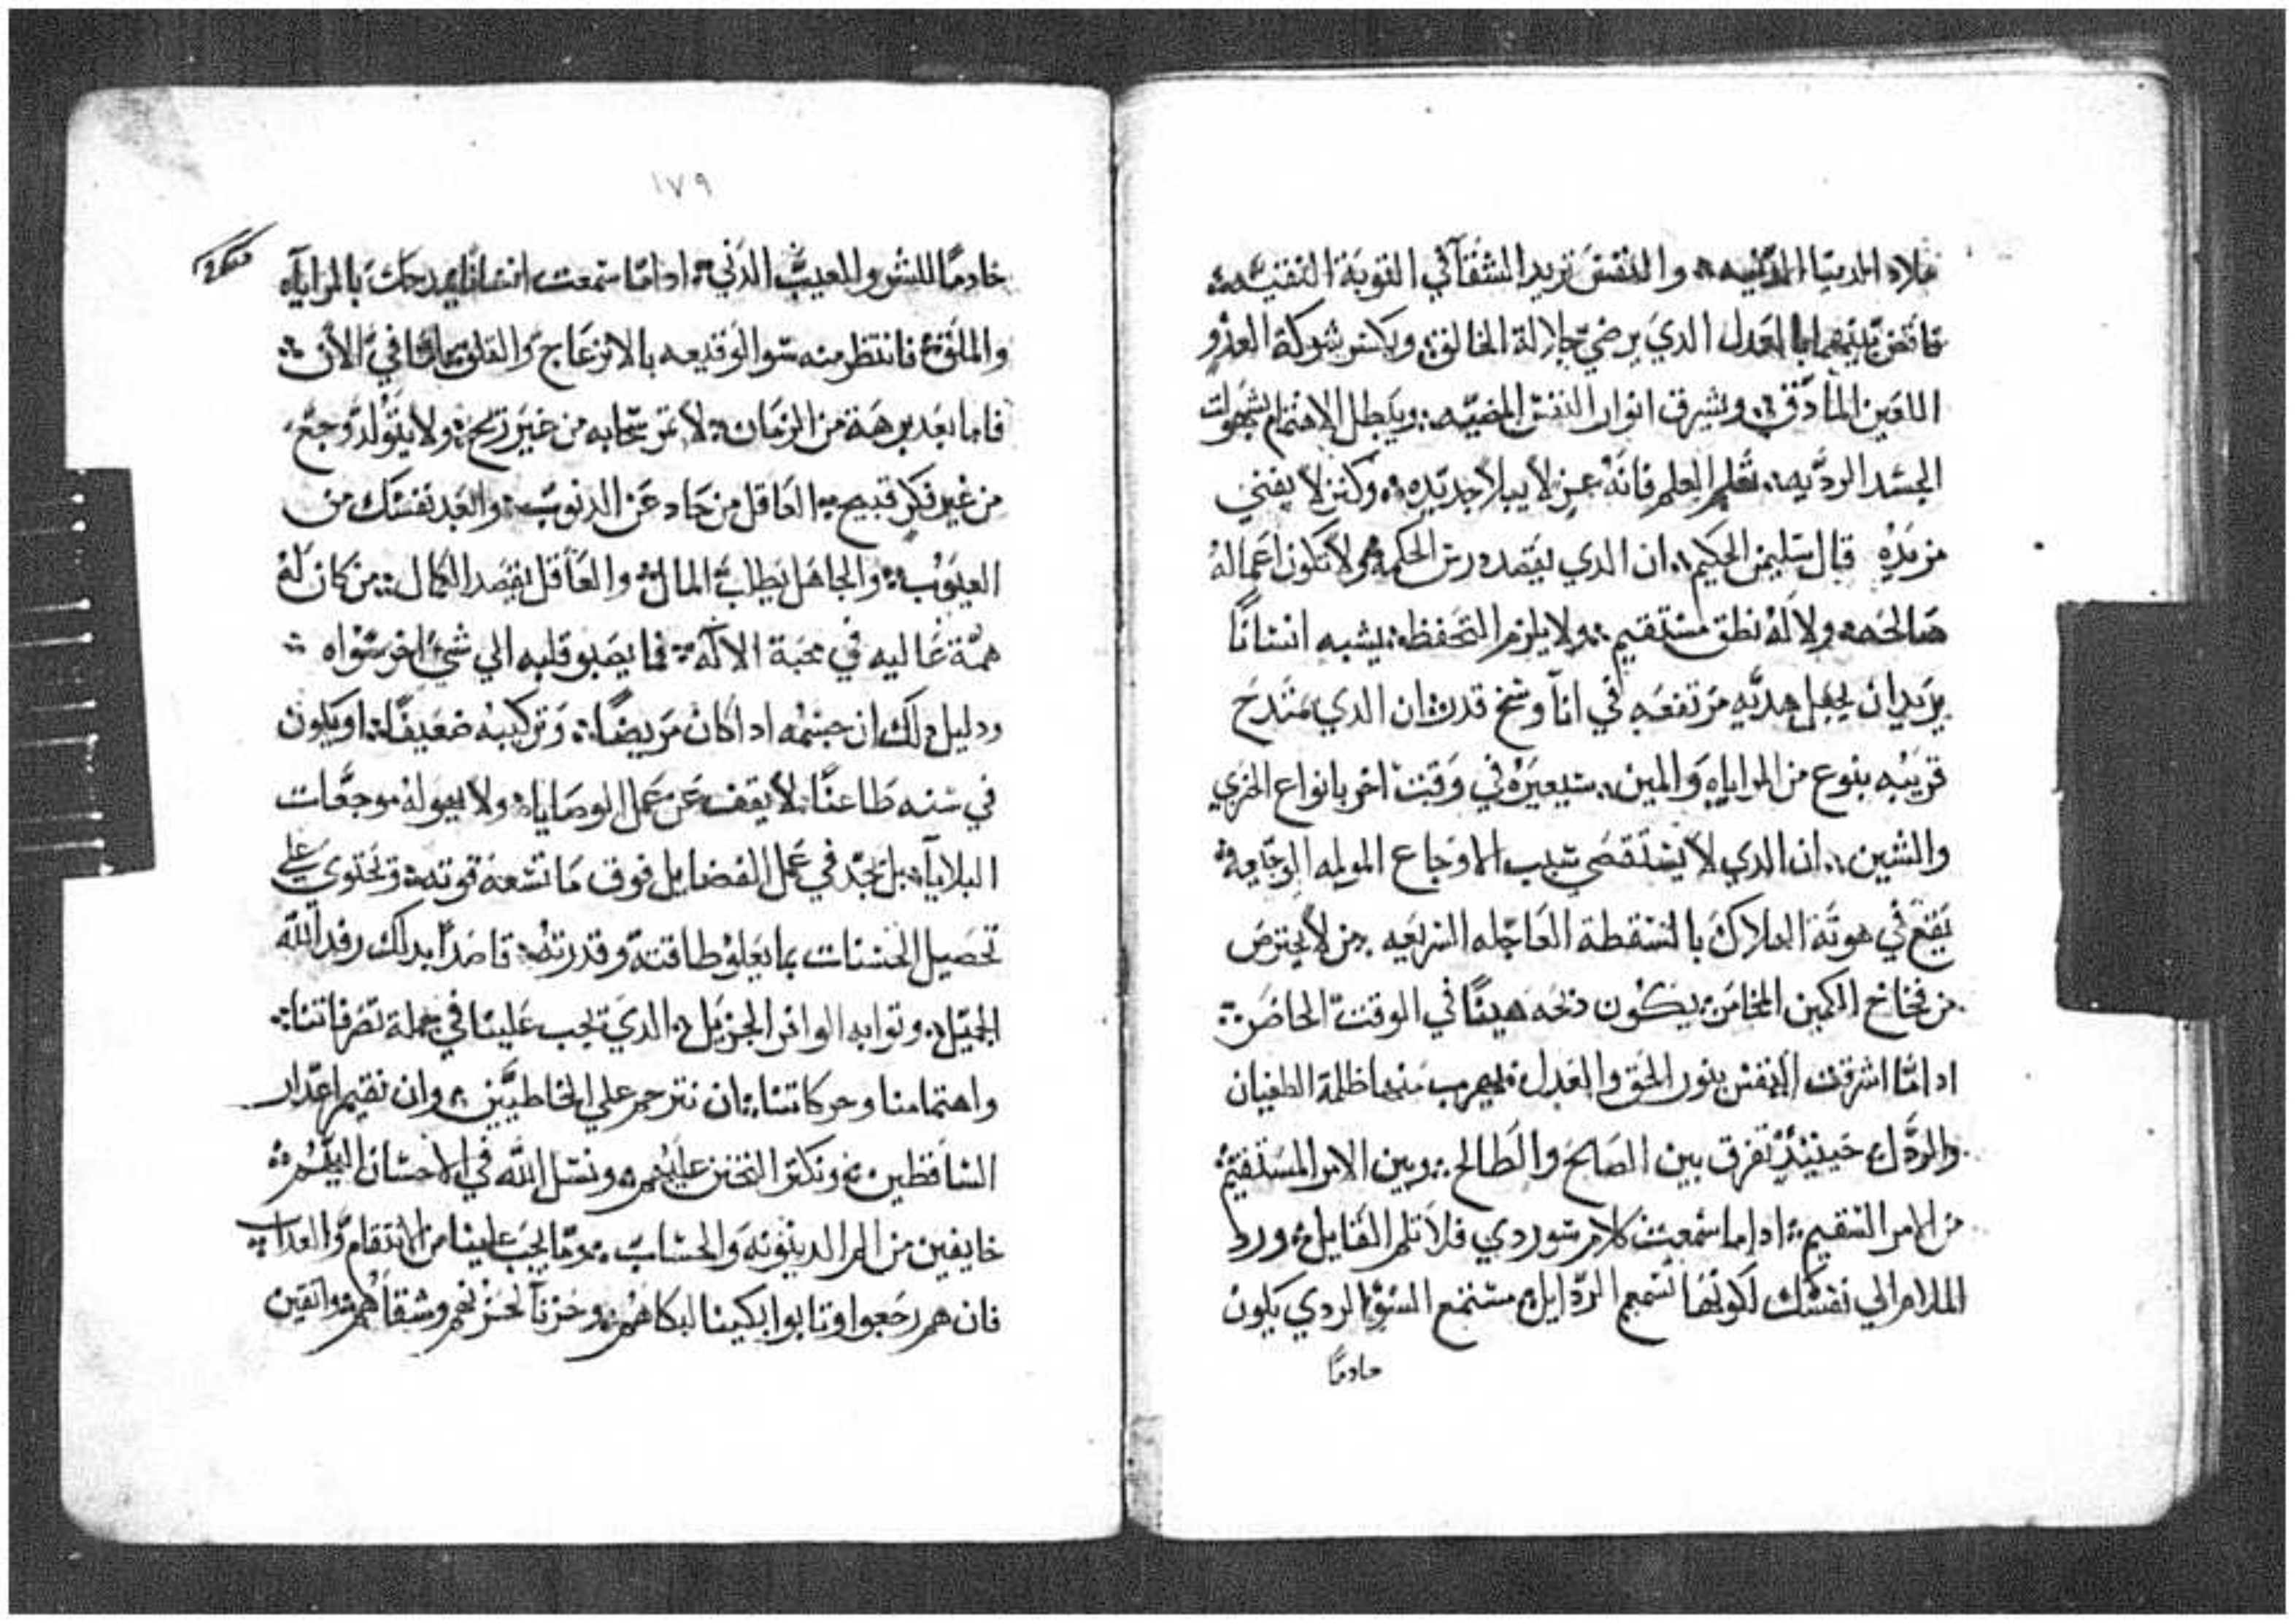 ملاد الدنيا الدنيه والنفس تريد الشقآ في التوبة النقيه
فاقض بينهما بالعدل الدي يرضي جلالة الخالق ويكسر شوكة العدو
اللعين المادق ويشرق انوار النفس المضيه ويبطل الاهتمام بشهوات
الجسد الرديه تعلم العلم فانه عز لا يبلا جديده وكنز لا يفني
مزيده قال سليمن الحكيم ان الدي يقصد درس الحكمه ولا تكون اعماله
صالحه ولا له نطق مستقيم ولا يلزم التحفظ يشبه انسانًا
يريد ان يجعل هديه مرتفعه في انآ وسخ قدر ان الدي يمتدح
قريبه بنوع من المراياه والمين سيعيره في وقت اخر بانواع الخزي
والشين ان الدي لا يستقصي سبب الاوجاع المولمه الوجيعه
يقع في هوتة الهلاك بالسقطة العاجله السريعه من لا يحترص
من فخاخ الكمين المخامر يكون دبحه هينًا في الوقت الحاضر
ادامّا اشرقت النفس بنور الحق والعدل يهرب منها ظلمة الطغيان
والردل حينيدٍ تفرق بين الصالح والطالح وبين الامر المستقيم
من الامر السقيم اداما سمعت كلام سو ردي فلا تلم القايل ورد
الملام الي نفسك لكونها تسمع الردايل مستمع السو الردي يكون
خادمًا
١٧٩
خادمًا للشر والمعيب الدني ادامّا سمعت انسانًا يمدحك بالمراياه
والملق فانتظر منه سو الوقيعه بالانزعاج والقلق امّا في الان
فاما بعد برهة من الزمان لا تمر سحابه من غير ريح ولا يتولد وجع
من غير فكر قبيح العاقل من حاد عن الدنوب وابعد نفسك من
العيوب والجاهل يطلب المال والعاقل يقصد الكمال من كان له
همّة عاليه في محبة الاله فما يصبو قلبه الي شيٍ اخر سواه
ودليل دلك ان جسمه اداكان مريضًا وتركيبه ضعيفًا او يكون
في سنه طاعنًا لا يقف عن عمل الوصايا ولا يعوله موجعات
البلايآ بل يجد في عمل الفضايل فوق ما تسعه قوته وتحتوي علي
تحصيل الحسنات بما يعلو طاقته وقدرته قاصدًا بدلك رفد الله
الجميل وتوابه الوافر الجزيل الدي يجب علينا في جملة تصرفاتنا
واهتمامنا وحركاتنا ان نترحم علي الخاطيين وان نقيم اعدار
الساقطين ونكتر التحنن عليهم ونسل الله في الاحسان اليهم
خايفين من امر الدينونه والحساب وما يجب علينا من الانتقام والعداب
فان هم رجعوا وتابوا بكينا لبكاهم وحزنآ لحزنهم وشقاهم واتقين